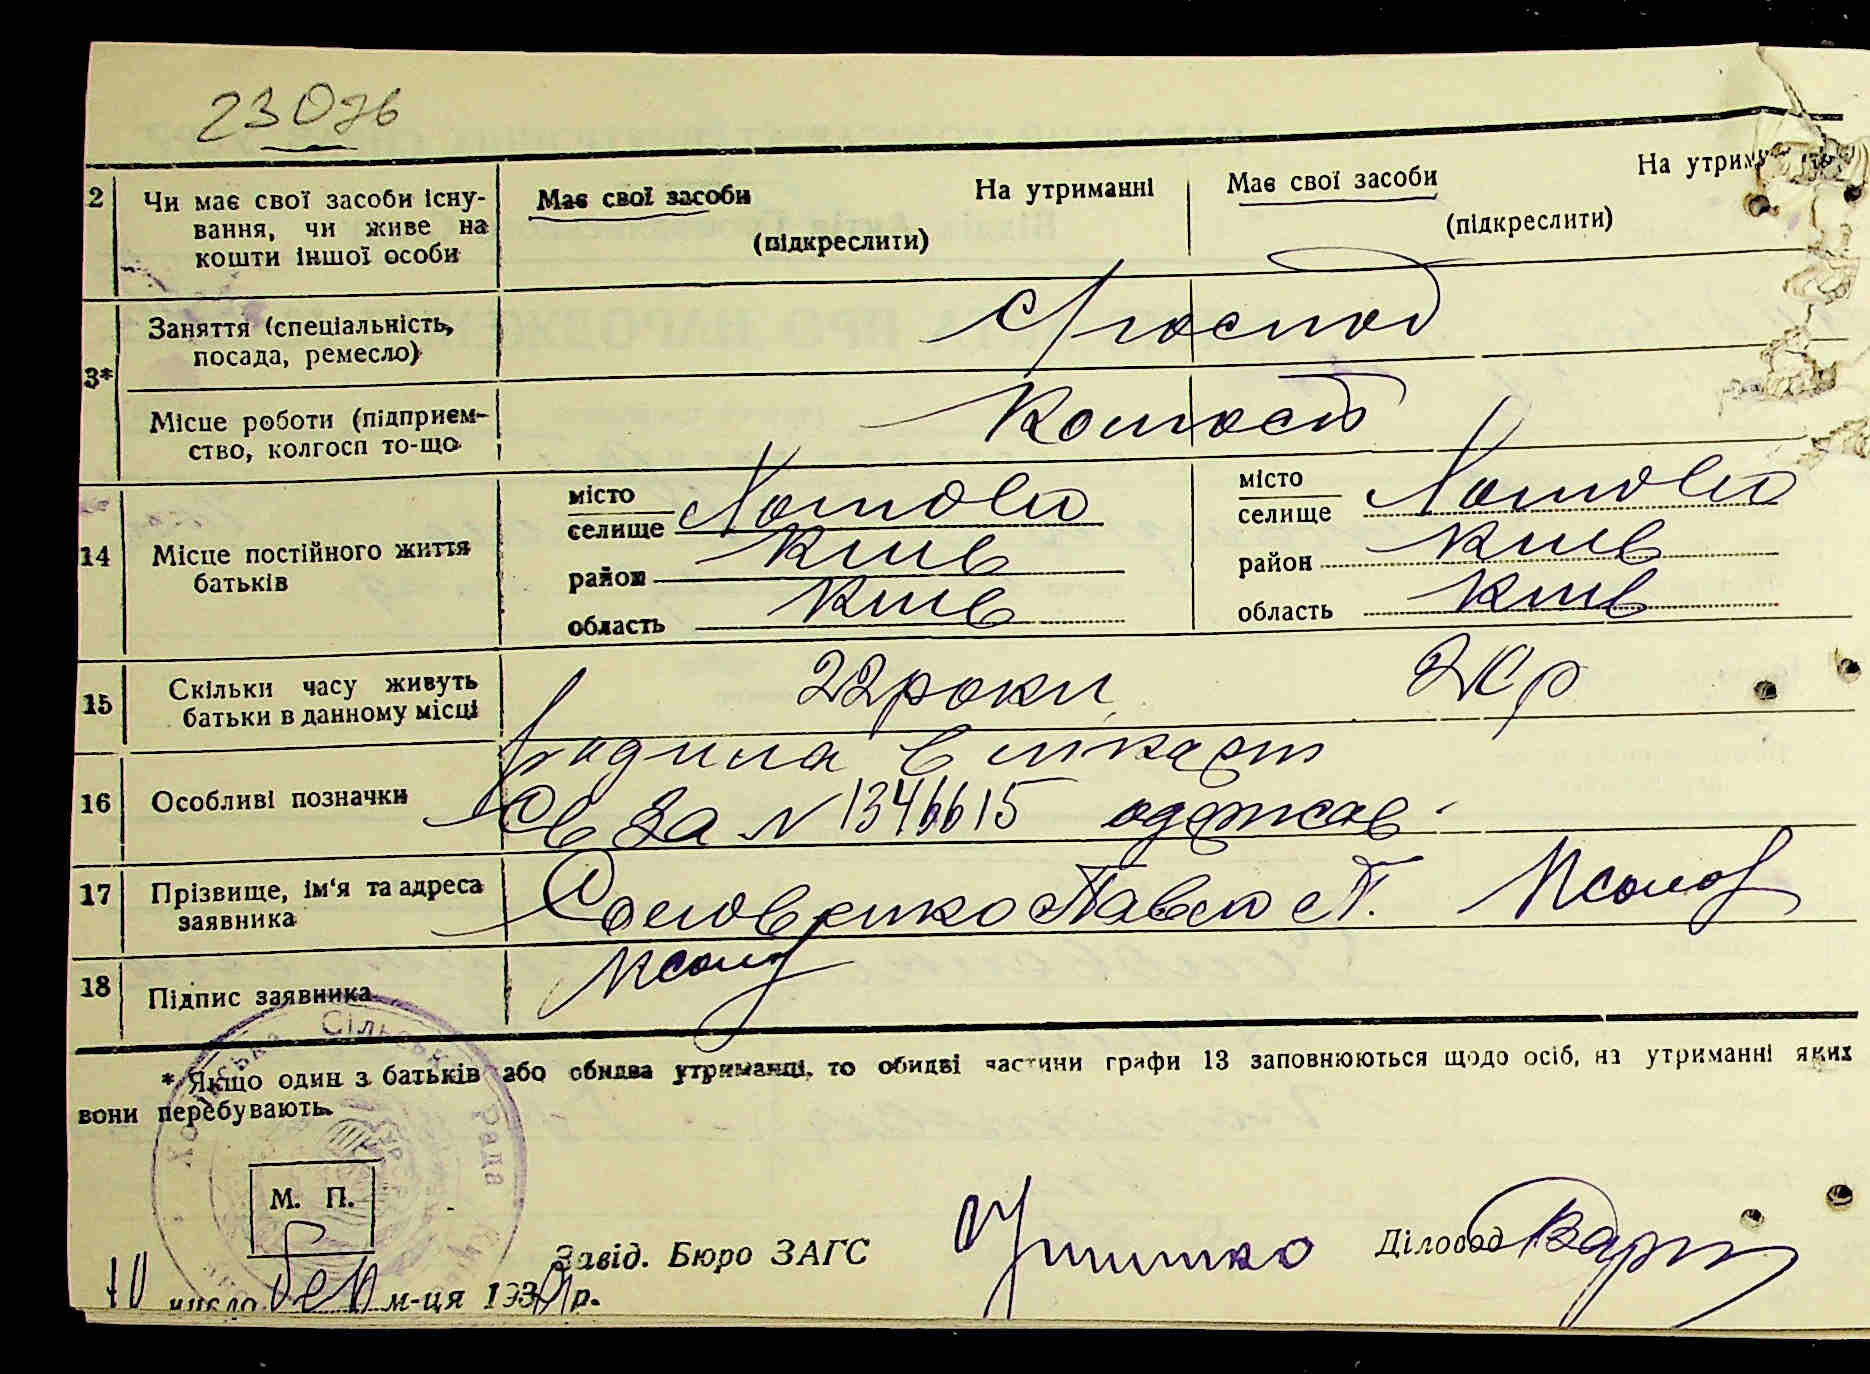 2
Чи має свої засоби існу-
вання, чи живе на
кошти іншої особи
Має свої засоби На утриманні
(підкреслити)
Має свої засоби На утрим
(підкреслити)
3*
Заняття (спеціальність,
посада, ремесло)
Місце роботи (підприєм-
ство, колгосп то-що
14
Місце постійного життя
батьків
місто
селище Хотов
район Київ
область Київ
місто
селище Хотов
район Київ
область Київ
15
Скільки часу живуть
батьки в данному місці
22 роки
16
Особливі позначки
родила в
Св за № 1346615 одержав
17
Прізвище, ім'я та адреса
заявника
Соловєнко Павло П.
18
Підпис заявника
* Якщо один з батьків або обидва утриманці, то обидві частини графи 13 заповнюються щодо осіб, на утриманні яких
вони перебувають.
Сільська Рада
М. П.
Завід. Бюро ЗАГС
Діловод
10 число м-ця 193 р.